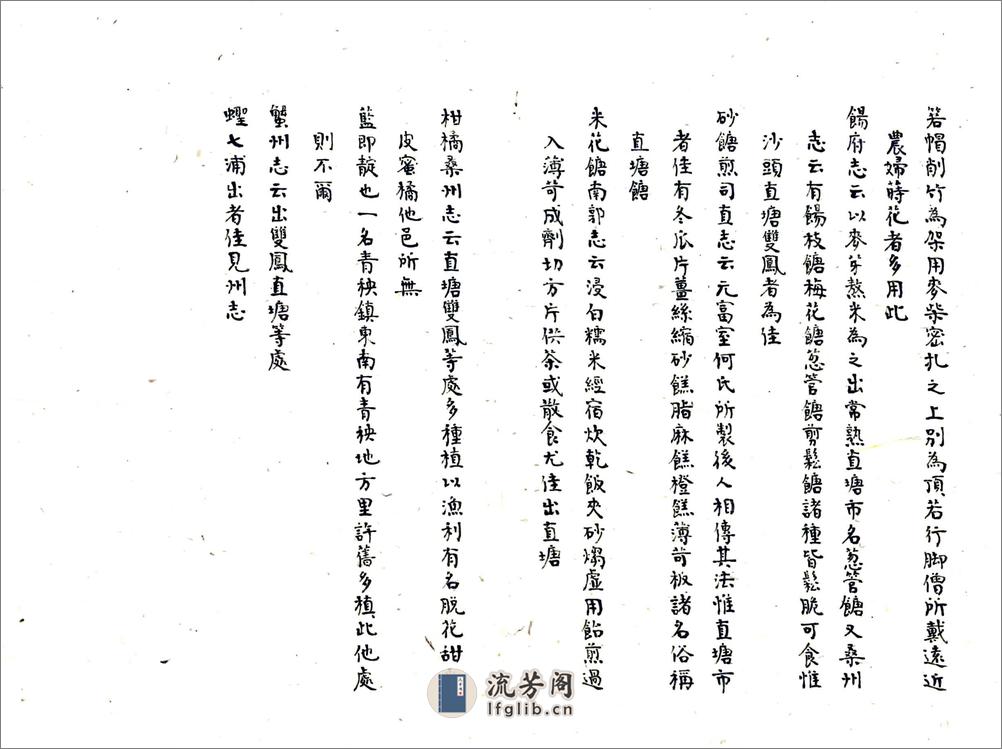 箬帽削竹為架用麥柴密扎之上別為頂若行脚僧所戴遠近
農婦蒔花者多用此
餳府志云以麥芽熬米為之出常熟直塘市名葱管餹又桑州
志云有餳枝餹梅花餹葱管餹剪鬆餹諸種皆鬆脆可食惟
沙頭直塘雙鳳者為佳
砂餹煎司直志云元富室何氏所製後人相傳其法惟直塘市
者佳有冬瓜片薑絲縮砂餻脂麻餻橙餻薄荷板諸名俗稱
直塘餹
米花餹南郭志云浸白糯米經宿炊乾飯夾砂煼虛用飴煎過
入薄荷成劑切方片供茶或散食尤佳出直塘
柑橘桑州志云直塘雙鳳等處多種植以漁利有名脫花甜
皮蜜橘他邑所無
藍即靛也一名青秧鎮東南有青秧地方里許舊多植此他處
則不爾
蟹州志云出雙鳳直塘等處
蟶七浦出者佳見州志
流芳阁
lfglib.cn